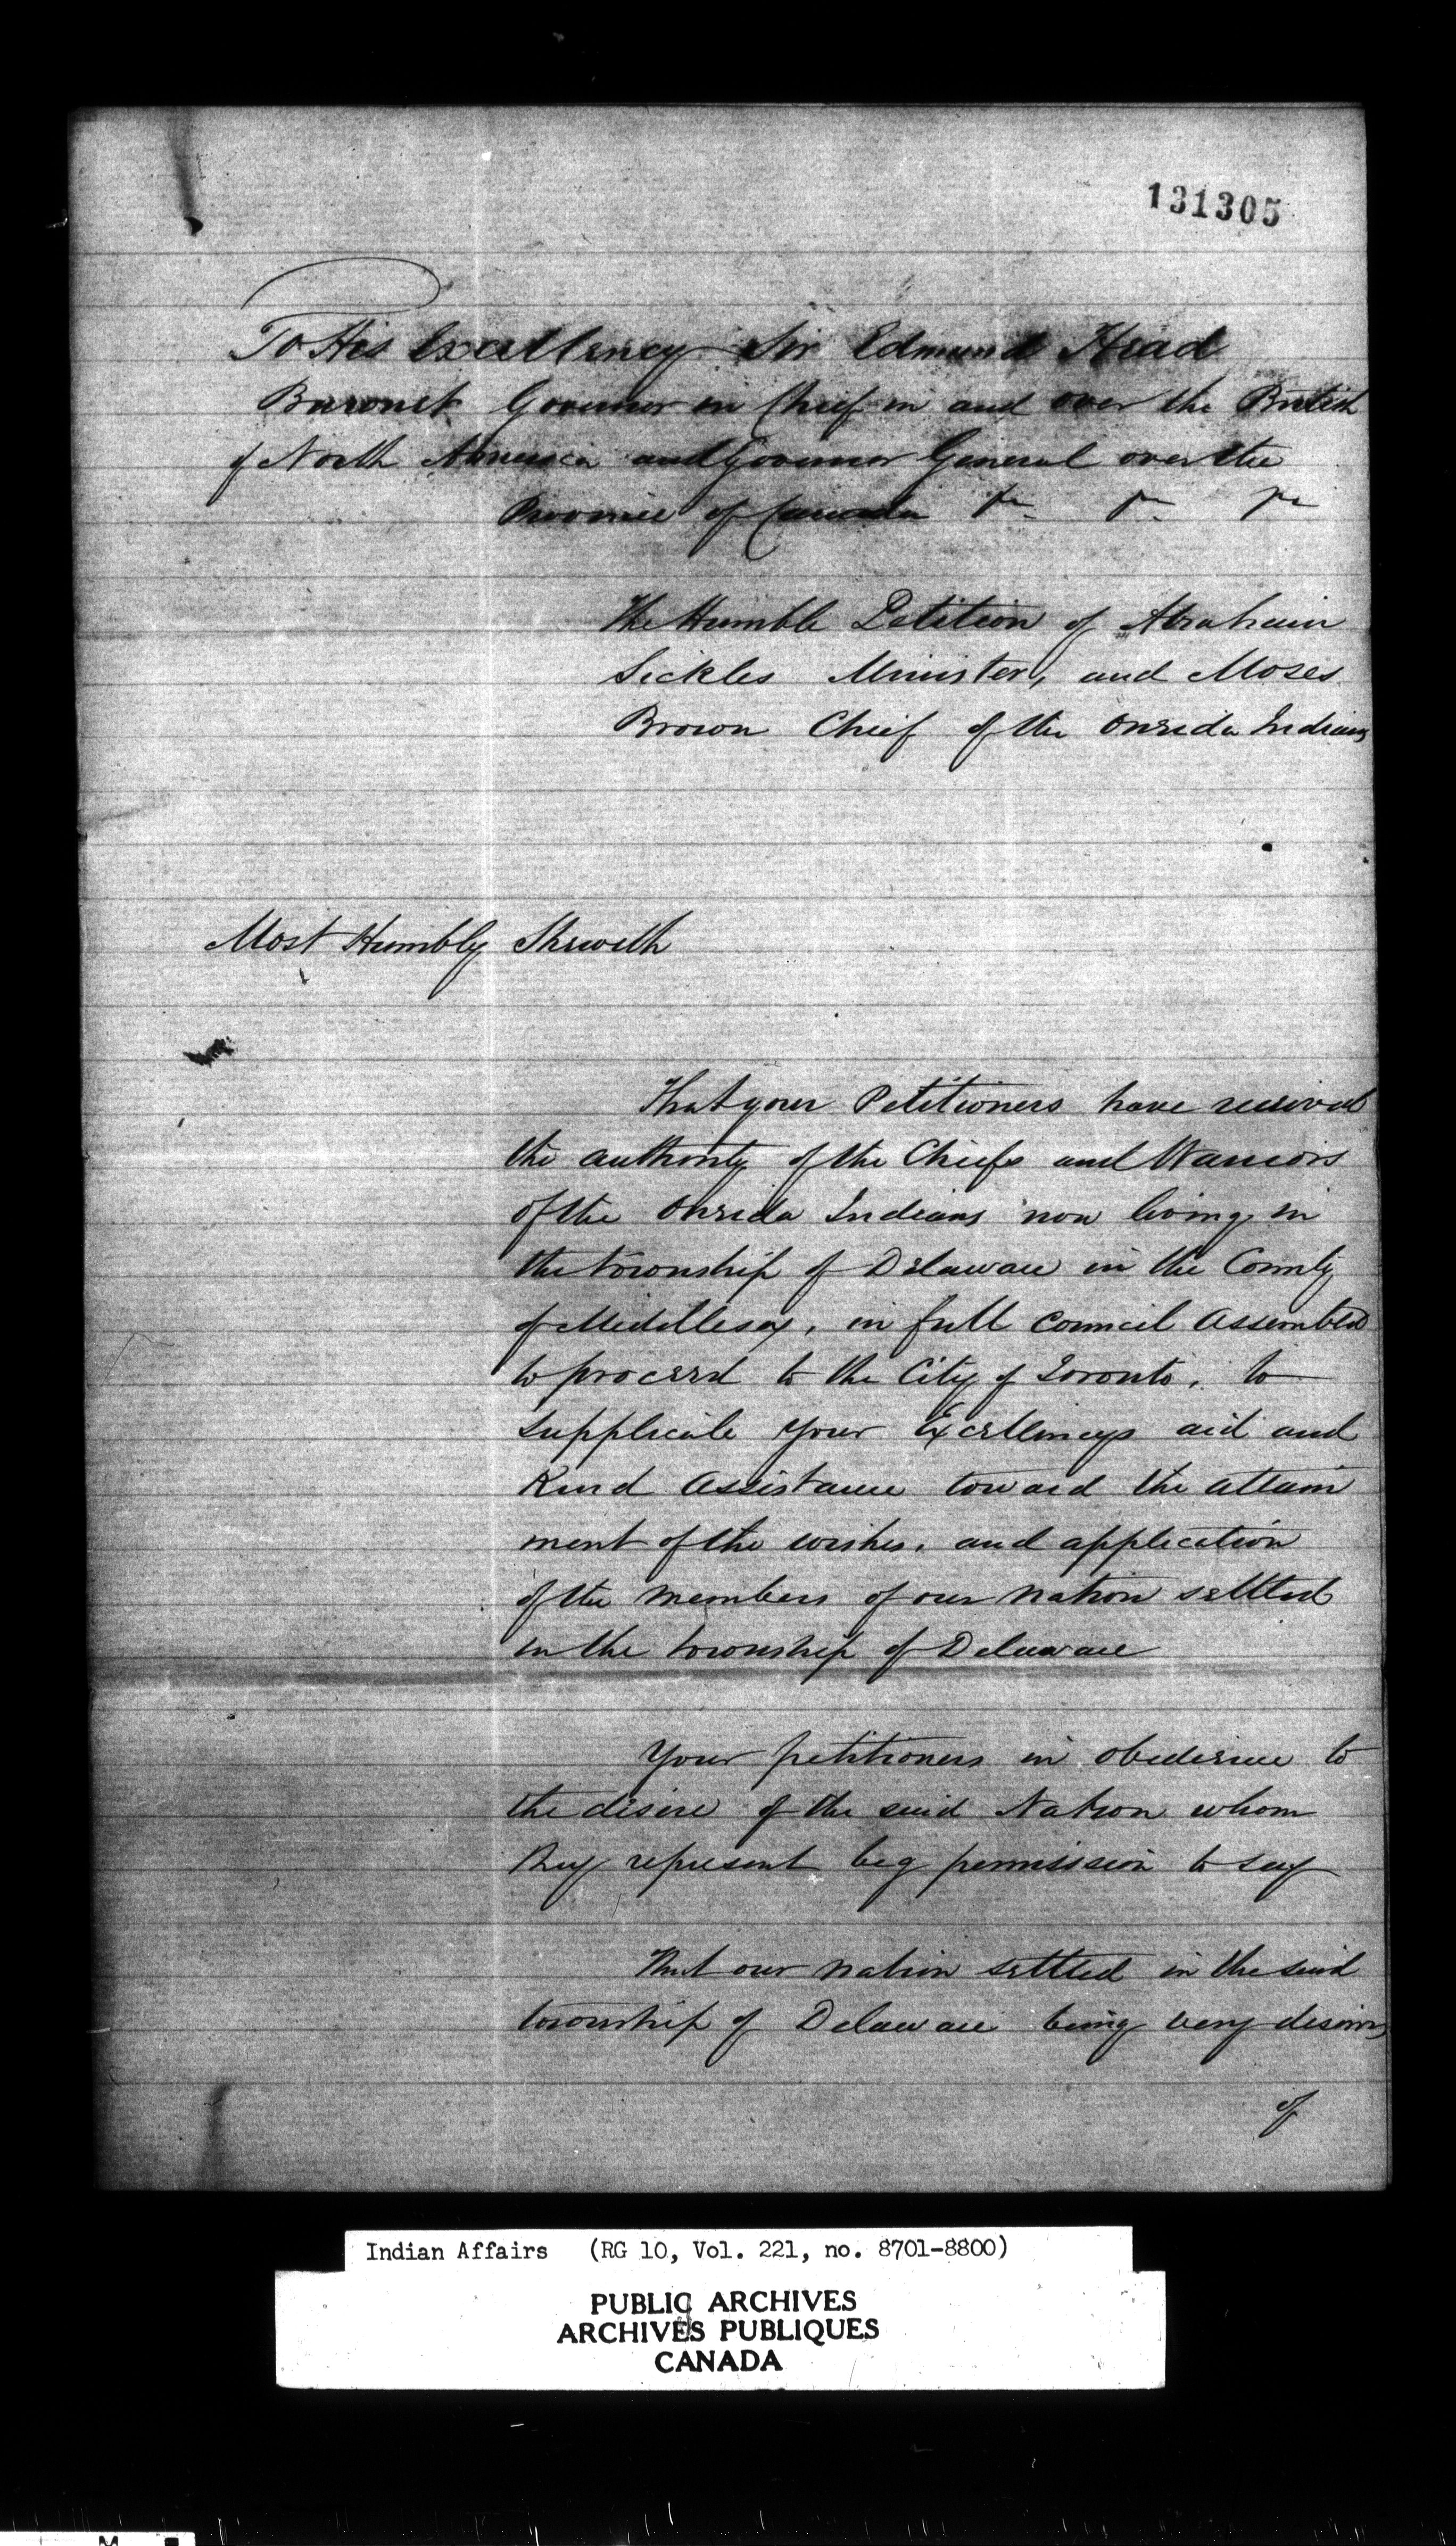 131305
To His Excellency Sir Edmund Head
Baronet Governor in Chief in and over the British
of North America and Governor General over the
Province of Canada &c &c &c
The Humble Petition of Abraham
Sickles Minister, and Moses
Brown Chief of the Oneida Indians
Most Humbly Sheweth
That your Petitioners have received
the authority of the Chiefs and Warriors
of the Oneida Indians now living in
the township of Delaware in the County
of Middlesex, in full Council assembled
to proceed to the City of Toronto, to
supplicate your Excellencys aid and
Kind assistance toward the attain
ment of the wishes, and application
of the members of our nation settled
in the township of Delaware
Your petitioners in obedience to
the desire of the said Nation whom
they represent beg permission to say
That our nation settled in the said
township of Delaware being very desirous
of
Indian Affairs (RG 10, Vol. 221, no. 8701-8800)
PUBLIC ARCHIVES
ARCHIVES PUBLIQUES
CANADA